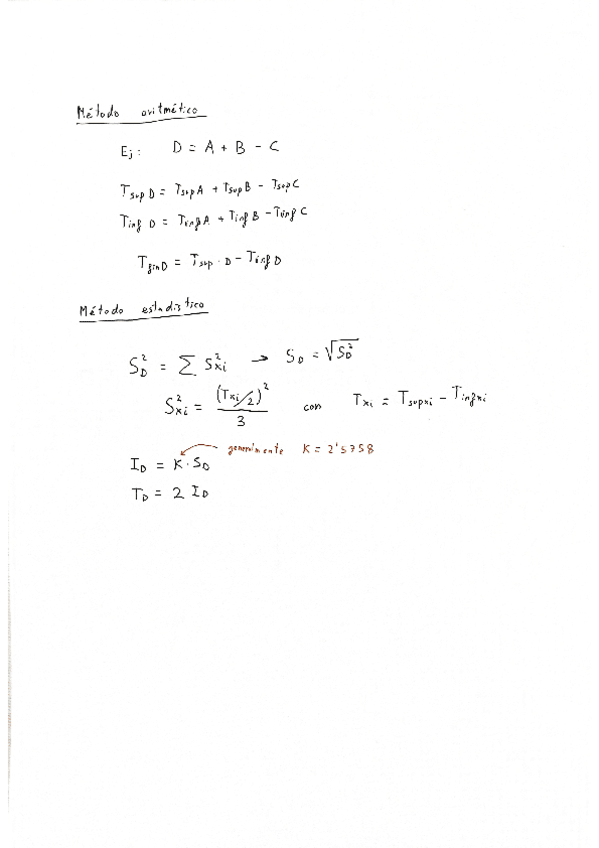 Método aritmético
Ej: D = A + B - C
Tsup D = Tsup A + Tsup B - Tsup C
Tinf D = Tinf A + Tinf B - Tinf C
Tfin D = Tsup · D - Tinf D
Método estadístico
S_D^2 = ∑ S_xi^2 → S_D = √S_D^2
S_xi^2 = (T_xi/2)^2 / 3 con T_xi = T_supxi - T_infxi
generalmente K = 2'5758
I_D = K · S_D
T_D = 2 I_D